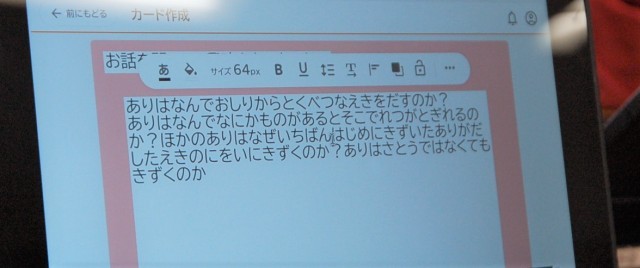 前にもどる カード作成
お話
あ サイズ 64px B U
ありはなんでおしりからとくべつなえきをだすのか？
ありはなんでなにかものがあるとそこでれつがとぎれるの
か？ほかのありはなぜいちばんはじめにきずいたありがだ
したえきのにをいにきずくのか？ありはさとうではなくても
きずくのか